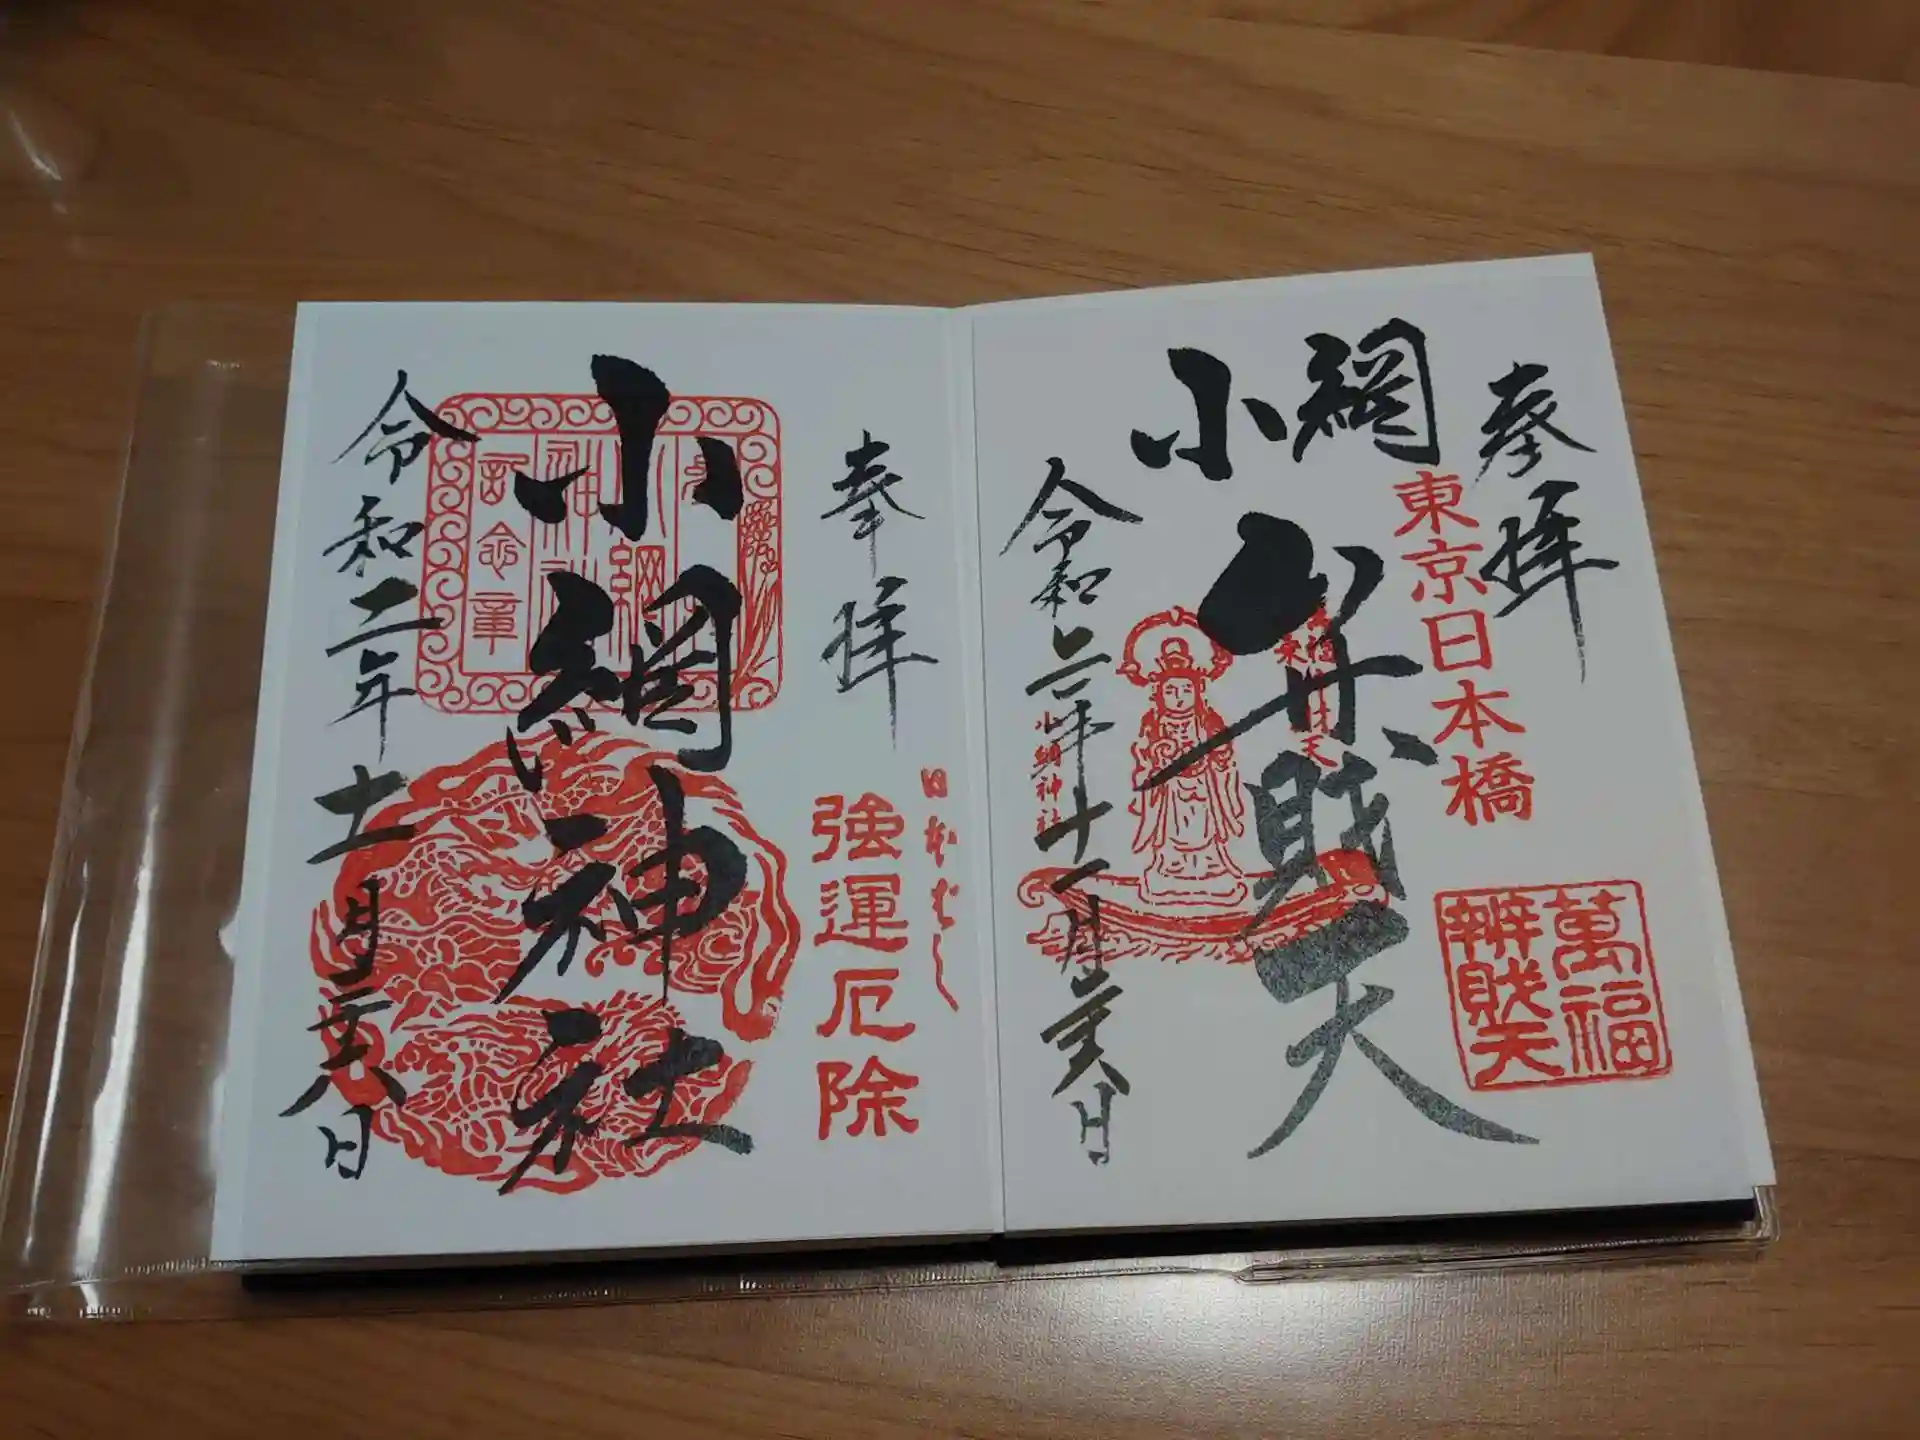 奉拝
東京日本橋
萬福
辨財天
小網
弁財天
萬福
舟乗
弁財天
小網神社
令和二年十一月二十六日
奉拝
日本ばし
強運厄除
小網神社
小網
神社
記念章
令和二年十一月二十六日